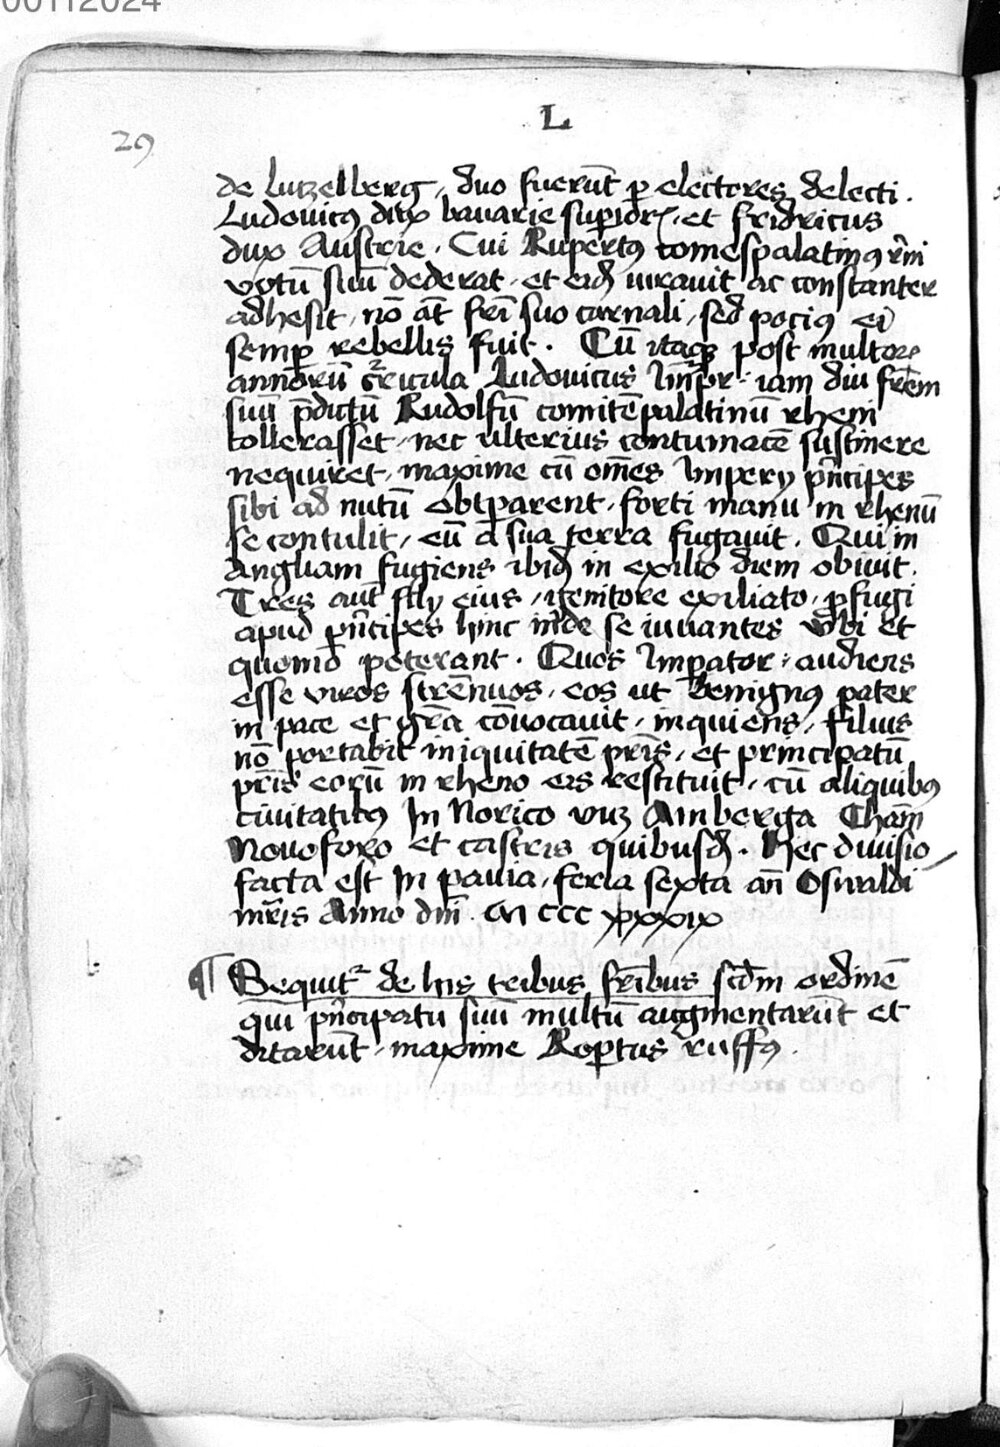 00112024
L
29
de Lutzelberg, duo fuerūt p electores delecti.
Ludovicꝰ dux bavarie superior, et fridricus
dux Austrie. Cui Rupertꝰ comespalatinꝰ rēni
votū suū dederat, et eidē iuravit ac constanter
adhesit, nō āt frī suo carnali, sed pociꝰ ei
semp rebellis fuit. Cū itaqꝫ post multoꝝ
annorū cricula Ludovicus Impr. iam diu frēm
suū p̄dictū Rudolfū comitēpalatinū rheni
tollerasset, nec ulterius contumacē sustinere
nequiret, maxime cū om̄es Impery p̄ncipes
sibi ad nutū obtparent, forti manu in rhenū
se contulit, eū a sua terra fugavit. Qui in
angliam fugiens ibid in exilio diem obivit.
Tres aūt fily eius, genitore exiliato, pfugi
apud p̄ncipes hinc inde se iuvantes ubi et
quomō poterant. Quos Impator, audiens
esse viros strēnuos, eos ut benignꝰ pater
in pace et grā cōvocavit, inquiens, filius
nō portabit iniquitatē pr̄is, et principatū
pr̄is eorū in rheno eis restituit, cū aliquibꝰ
civitatibꝰ In Norico vꝫ Amberga Chām
Novoforo et castris quibusd. Hec divisio
facta est In pavia, feria sexta an̄ Oswaldi
mr̄is Anno dm̄ M CCC xxxix
¶ Sequit de his tribus fr̄ibus scdm ordinē
qui p̄ncipatū suū multū augmentarūt et
ditarūt, maxime Roptus ruffꝰ.